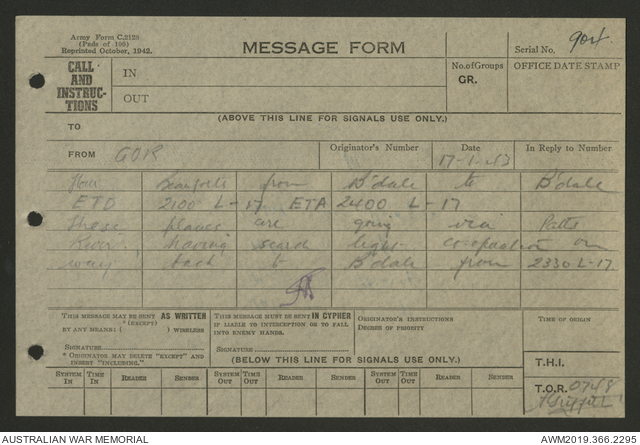 Army Form C.2128
(Pads of 100)
Reprinted October, 1942.
MESSAGE FORM
Serial No.
CALL AND INSTRUCTIONS
IN
OUT
No. of Groups
GR.
OFFICE DATE STAMP
(ABOVE THIS LINE FOR SIGNALS USE ONLY.)
TO
FROM GOR
Originator's Number
Date
17-1-43
In Reply to Number
Four Beauforts from B'dale to B'dale
ETD 2100 L-17 ETA 2400 L-17
these planes are going via Patts
River having search light co-operation on
way back to B'dale from 2330 L-17.
THIS MESSAGE MAY BE SENT AS WRITTEN
*(EXCEPT)
BY ANY MEANS ( ) WIRELESS
SIGNATURE
* ORIGINATOR MAY DELETE "EXCEPT" AND
INSERT "INCLUDING."
THIS MESSAGE MUST BE SENT IN CYPHER
IF LIABLE TO INTERCEPTION OR TO FALL
INTO ENEMY HANDS.
SIGNATURE
ORIGINATOR'S INSTRUCTIONS
DEGREE OF PRIORITY
TIME OF ORIGIN
(BELOW THIS LINE FOR SIGNALS USE ONLY.)
T.H.I.
SYSTEM IN TIME IN READER SENDER SYSTEM OUT TIME OUT READER SENDER SYSTEM OUT TIME OUT READER SENDER
T.O.R. 0748
AUSTRALIAN WAR MEMORIAL
AWM2019.366.2295